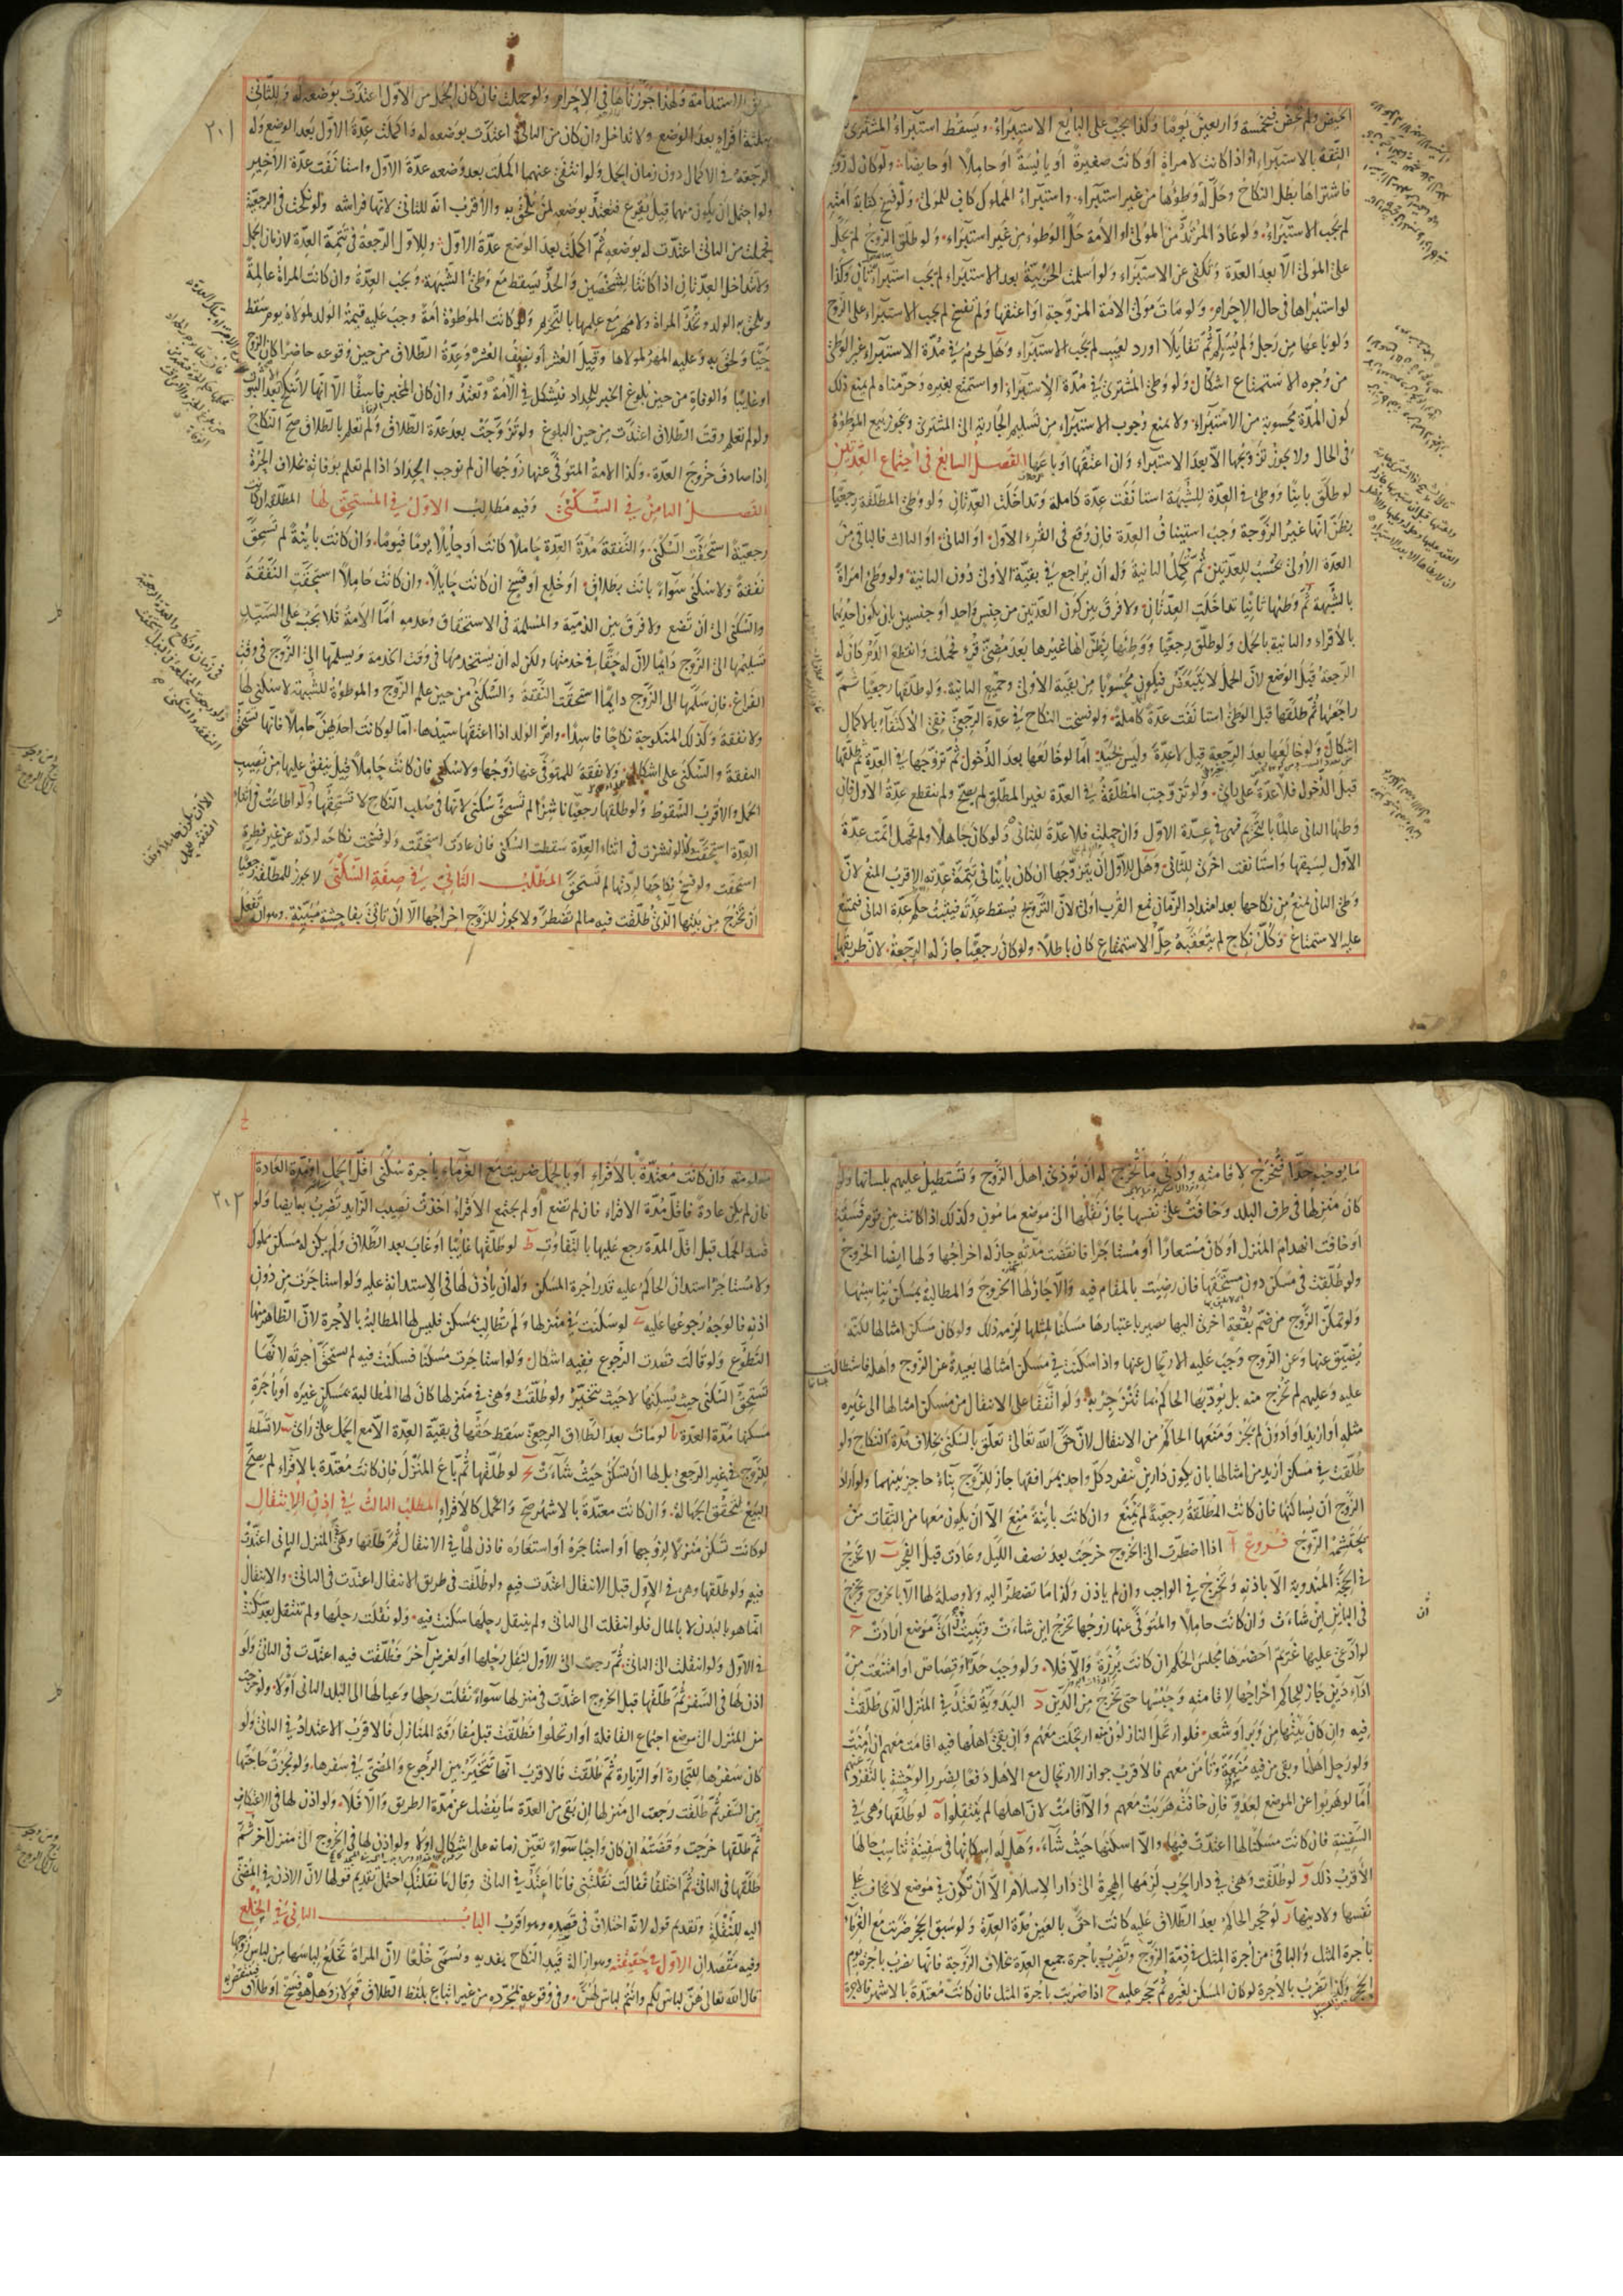 الحيض ولم تحض فخمسة واربعين يوما وكذا يجب على البايع الاستبراء ويسقط استبراء المشتري
الثقة بالاستبراء او اذا كانت لامراة او كانت صغيرة او يايسة او حاملا او حايضا ولو كان له زوجة
فاشتراها بطل النكاح وحل له وطؤها من غير استبراء واستبراء المملوك كاف للمولى ولو فسخ كتابة امته
لم يجب الاستبراء ولو عاد المرتد من المولى او الامة حل الوطوء من غير استبراء ولو طلق الزوج لم يحل
على المولى الا بعد العدة وتكفي عن الاستبراء ولو اسلمت الحربية بعد الاستبراء لم يجب استبراء ثاني وكذا
لو استبراها في حال الاحرام ولو مات مولى الامة المزوجة او اعتقها ولم تفسخ لم يجب الاستبراء على الزوج
ولو باعها من رجل ولم يسلم ثم تقايلا او رد لعيب لم يجب الاستبراء وهل يحرم في مدة الاستبراء غير الوطى
من وجوه الاستمتاع اشكال ولو وطئ المشتري في مدة الاستبراء او استمتع بغيره وحرمناه لم يمنع ذلك
كون المدة محسوبة من الاستبراء ولا يمنع وجوب الاستبراء من تسليم الجارية الى المشتري ويجوز بيع الموطوءة
في الحال ولا يجوز تزويجها الا بعد الاستبراء وان اعتقها او باعها الفصل السابع في اجتماع العدتين
لو طلق باينا ووطئ في العدة للشبهة استانفت عدة كاملة وتداخلت العدتان ولو وطئ المطلقة رجعيا
بظن انها غير الزوجة وجب استيناف العدة فان وقع في القرء الاول او الثاني او الثالث فالباقي من
العدة الاولى يحسب للعدتين ثم تكمل الثانية وله ان يراجع في بقية الاولى دون الثانية ولو وطئ امراة
بالشبهة ثم وطئها ثانيا تداخلت العدتان ولا فرق بين كون العدتين من جنس واحد او جنسين بان يكون احديهما
بالاقراء والثانية بالحمل ولو طلق رجعيا ووطئها بظن انها غيرها بعد مضي قرء فحملت وانقطع الدم كان له
الرجعة قبل الوضع لان الحمل لا يتبعض فيكون محسوبا من بقية الاولى وجميع الثانية ولو طلقها رجعيا ثم
راجعها ثم طلقها قبل الوطئ استانفت عدة كاملة ولو فسخت النكاح في عدة الرجعي ففي الاكتفاء بالاكمال
اشكال ولو خالعها بعد الرجعة قيل لا عدة وليس بجيد اما لو خالعها بعد الدخول ثم تزوجها في العدة ثم طلقها
قبل الدخول فلا عدة على رأي ولو تزوجت المطلقة في العدة بغير المطلق لم يصح ولم تنقطع عدة الاول فان
وطئها الثاني عالما بالتحريم فهي في عدة الاول وان حملت فلا عدة للثاني ولو كان جاهلا ولم تحمل اتمت عدة
الاول لسبقها واستانفت اخرى للثاني وهل للاول ان يتزوجها ان كان باينا في تتمة عدته الاقرب المنع لان
وطئ الثاني يمنع من نكاحها بعد امتداد الزمان فمع القرب اولى لان التزويج يسقط عدته فيثبت حكم عدة الثاني فيمتنع
عليه الاستمتاع وكل نكاح لم يتعقبه حل الاستمتاع كان باطلا ولو كان رجعيا جاز له الرجعة لان طريقها
٢٠١
طريق الاستدامة ولهذا جوزناها في الاحرام ولو حملت فان كان الحمل من الاول اعتدت بوضعه له وللثاني
بثلثة اقراء بعد الوضع ولا تداخل وان كان من الثاني اعتدت بوضعه له واكملت عدة الاول بعد الوضع وله
الرجعة في الاكمال دون زمان الحمل ولو انتفى عنهما اكملت بعد وضعه عدة الاول واستانفت عدة الاخير
ولو احتمل ان يكون منهما قيل يقرع فتعتد بوضعه لمن يلحق به والاقرب انه للثاني لانها فراشه ولو نكحت في الرجعية
فحملت من الثاني اعتدت له بوضعه ثم اكملت بعد الوضع عدة الاول وللاول الرجعة في تتمة العدة لا زمان الحمل
ولا تتداخل العدتان اذا كانتا لشخصين والحد يسقط مع وطئ الشبهة ويجب العدة وان كانت المراة عالمة
ويلحق به الولد وتحد المراة ولا مهر مع علمها بالتحريم ولو كانت الموطوءة امة وجب عليه قيمة الولد لمولاه يوم سقط
حيا ولحق به وعليه المهر لمولاها وقيل العشر او نصف العشر وعدة الطلاق من حين وقوعه حاضرا كان الزوج
او غايبا والوفاة من حين بلوغ الخبر للحداد فيشكل في الامة وتعتد وان كان المخبر فاسقا الا انها لا تنكح الا بعد الثبوت
ولو لم تعلم وقت الطلاق اعتدت من حين البلوغ ولو تزوجت بعد عدة الطلاق ولم تعلم بالطلاق صح النكاح
اذا صادف خروج العدة وكذا الامة المتوفى عنها زوجها ان لم نوجب الحداد اذا لم تعلم بوفاته بخلاف الحرة
الفصل الثامن في السكنى وفيه مطالب الاول في المستحق لها المطلقة ان كانت
رجعية استحقت السكنى والنفقة مدة العدة حاملا كانت او حايلا يوما فيوما وان كانت باينة لم تستحق
نفقة ولا سكنى سواء بانت بطلاق او خلع او فسخ ان كانت حايلا وان كانت حاملا استحقت النفقة
والسكنى الى ان تضع ولا فرق بين الذمية والمسلمة في الاستحقاق وعدمه اما الامة فلا يجب على السيد
تسليمها الى الزوج دايما لان له حقا في خدمتها ولكن له ان يستخدمها في وقت الخدمة ويسلمها الى الزوج في وقت
الفراغ فان سلمها الى الزوج دايما استحقت النفقة والسكنى من حين علم الزوج والموطوءة للشبهة لا سكنى لها
ولا نفقة وكذلك المنكوحة نكاحا فاسدا وام الولد اذا اعتقها سيدها اما لو كانت احدهن حاملا فانها تستحق
النفقة والسكنى على اشكال ولا نفقة للمتوفى عنها زوجها ولا سكنى فان كانت حاملا قيل ينفق عليها من نصيب
الحمل والاقرب السقوط ولو طلقها رجعيا ناشزا لم تستحق سكنى لانها في صلب النكاح لا تستحقها ولو اطاعت في اثناء
العدة استحقت كذا لو نشزت في اثناء العدة سقطت السكنى فان عادت استحقت ولو فسخت نكاحه لردته عن غير فطرة
استحقت ولو فسخ نكاحها لردتها لم تستحق المطلب الثاني في صفة السكنى لا يجوز للمطلقة رجعيا
ان تخرج من بيتها الذي طلقت فيه ما لم تضطر ولا يجوز للزوج اخراجها الا ان تاتي بفاحشة مبينة وهو ان تفعل
ما يوجب حدا فتخرج لاقامته وادنى ما تخرج له ان تؤذي اهل الزوج وتستطيل عليهم بلسانها ولو
كان منزلها في طرف البلد وخافت على نفسها جاز نقلها الى موضع مامون وكذلك اذا كانت بين قوم فسقة
او خافت انهدام المنزل او كان مستعارا او مستاجرا فانقضت مدته جاز له اخراجها ولها ايضا الخروج
ولو طلقت في مسكن دون مستحقها فان رضيت بالمقام فيه والا جاز لها الخروج والمطالبة بمسكن يناسبها
ولو تمكن الزوج من ضم بقعة اخرى اليها يصير باعتبارها مسكنا لمثلها لزمه ذلك ولو كان مسكن امثالها لكنه
يضيق عنها وعن الزوج وجب عليه الارتحال عنها واذا سكنت في مسكن امثالها بعيدة عن الزوج واهله فاستطالت
عليه وعليهم لم تخرج منه بل يؤدبها الحاكم بما تنزجر به ولو اتفقا على الانتقال من مسكن امثالها الى غيره
مثله او ازيد او ادون لم يجز ومنعها الحاكم من الانتقال لان حق الله تعالى تعلق بالسكنى بخلاف مدة النكاح ولو
طلقت في مسكن ازيد من امثالها بان يكون دارين ينفرد كل واحد بمرافقها جاز للزوج بناء حاجز بينهما ولو اراد
الزوج ان يساكنها فان كانت المطلقة رجعية لم يمنع وان كانت باينة منع الا ان يكون معها من الثقات من
يحتشمه الزوج فروع آ اذا اضطرت الى الخروج خرجت بعد نصف الليل وعادت قبل الفجر ب لا تخرج
في الحجة المندوبة الا باذنه وتخرج في الواجب وان لم ياذن وكذا ما تضطر اليه ولا وصلة لها الا بالخروج وتخرج
في الباين اين شاءت وان كانت حاملا والمتوفى عنها زوجها تخرج اين شاءت وتبيت اي موضع ارادت ج
لو ادعى عليها غريم احضرها مجلس الحكم ان كانت برزة والا فلا ولو وجب حد او قصاص او امتنعت من
اداء دين جاز للحاكم اخراجها لاقامته وحبسها حتى تخرج من الدين د البدوية تعتد في المنزل الذي طلقت
فيه وان كان بيتها من وبر او شعر فلو ارتحل النازلون به ارتحلت معهم وان بقي اهلها فيه اقامت معهم ان امنت
ولو رحل اهلها وبقي من فيه منعة وتأمن معهم فالاقرب جواز الارتحال مع الاهل دفعا لضرر الوحشة بالتفرد عنهم
اما لو هربوا عن الموضع لعدو فان خافت هربت معهم والا اقامت لان اهلها لم ينتقلوا ه لو طلقها وهي في
السفينة فان كانت مسكنا لها اعتدت فيها والا اسكنها حيث شاء وهل له اسكانها في سفينة تناسب حالها
الاقرب ذلك و لو طلقت وهي في دار الحرب لزمها الهجرة الى دار الاسلام الا ان تكون في موضع لا تخاف على
نفسها ولا دينها ز لو حجر الحاكم بعد الطلاق عليه كانت احق بالعين مدة العدة ولو سبق الحجر ضربت مع الغرماء
باجرة المثل والباقي من اجرة المثل في ذمة الزوج وتضرب باجرة جميع العدة بخلاف الزوجة فانها تضرب باجرة يوم
الحجر وكذا تضرب بالاجرة لو كان المسكن لغيره ثم حجر عليه ح اذا ضربت باجرة المثل فان كانت معتدة بالاشهر فالاجرة
٢٠٢
معلومة وان كانت معتدة بالاقراء او بالحمل ضربت مع الغرماء باجرة سكنى اقل الحمل او مدة العادة
فان لم يكن عادة فاقل مدة الاقراء فان لم تضع او لم يجتمع الاقراء اخذت نصيب الزايد تضرب به ايضا ولو
فسد الحمل قبل اقل المدة رجع عليها بالتفاوت ط لو طلقها غايبا او غاب بعد الطلاق ولم يكن له مسكن مملوك
ولا مستاجر استدان الحاكم عليه قدر اجرة المسكن وله ان ياذن لها في الاستدانة عليه ولو استاجرت من دون
اذنه فالوجه رجوعها عليه ي لو سكنت في منزلها ولم تطالب بمسكن فليس لها المطالبة بالاجرة لان الظاهر منها
التطوع ولو قالت قصدت الرجوع ففيه اشكال ولو استاجرت مسكنا فسكنت فيه لم تستحق اجرته لانها
تستحق السكنى حيث يسكنها لا حيث تتخير ولو طلقت وهي في منزلها كان لها المطالبة بمسكن غيره او باجرة
مسكنها مدة العدة يا لو مات بعد الطلاق الرجعي سقط حقها في بقية العدة الا مع الحمل على راي يب لا تسلط
للزوج في غير الرجعي بل لها ان تسكن حيث شاءت يج لو طلقها ثم باع المنزل فان كانت معتدة بالاقراء لم يصح
البيع لتحقق الجهالة وان كانت معتدة بالاشهر صح والحمل كالاقراء المطلب الثالث في اذن الانتقال
لو كانت تسكن منزلا لزوجها او استاجره او استعاره فاذن لها في الانتقال ثم طلقها وهي في المنزل الثاني اعتدت
فيه ولو طلقها وهي في الاول قبل الانتقال اعتدت فيه ولو طلقت في طريق الانتقال اعتدت في الثاني والانتقال
انما هو بالبدن لا بالمال فلو انتقلت الى الثاني ولم ينتقل رحلها سكنت فيه ولو نقلت رحلها ولم تنتقل بعد سكنت
في الاول ولو انتقلت الى الثاني ثم رجعت الى الاول لنقل رحلها او لغرض آخر فطلقت فيه اعتدت في الثاني ولو
اذن لها في السفر ثم طلقها قبل الخروج اعتدت في منزلها سواء نقلت رحلها وعيالها الى البلد الثاني او لا ولو خرجت
من المنزل الى موضع اجتماع القافلة او ارتحلوا فطلقت قبل مفارقة المنازل فالاقرب الاعتداد في الثاني ولو
كان سفرها للتجارة او الزيارة ثم طلقت فالاقرب انها تتخير بين الرجوع والمضي في سفرها ولو نجزت حاجتها
من السفر ثم طلقت رجعت الى منزلها ان بقي من العدة ما يفضل عن مدة الطريق والا فلا ولو اذن لها في الاعتكاف
ثم طلقها خرجت وقضته ان كان واجبا سواء تعين زمانه على اشكال او لا ولو اذن لها في الخروج الى منزل آخر ثم
طلقها في الثاني ثم اختلفا فقالت نقلتني فانا اعتد في الثاني وقال ما نقلتك احتمل تقديم قولها لان الاذن في المضي
اليه للنقلة وتقديم قوله لانه اختلاف في قصده وهو اقرب الباب الثاني في الخلع
وفيه مقصدان الاول في حقيقته وهو ازالة قيد النكاح بفدية وسمي خلعا لان المراة تخلع لباسها من لباس زوجها
قال الله تعالى هن لباس لكم وانتم لباس لهن وفي وقوعه بمجرده من غير اتباع بلفظ الطلاق قولان وهل هو فسخ او طلاق